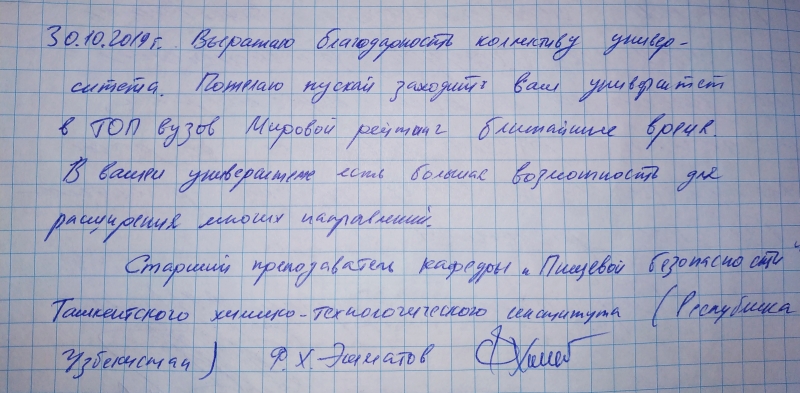 30.10.2019г. Выражаю благодарность коллективу универ-
ситета. Пожелаю пускай заходить ваш университет
в ТОП вузов Мировой рейтинг ближайшие время.
В вашем университете есть большая возможность для
расширения многих направлений.
Старший преподаватель кафедры „Пищевой безопасности"
Ташкентского химико-технологического института (Республика
Узбекистан) Ф.Х.Эшматов